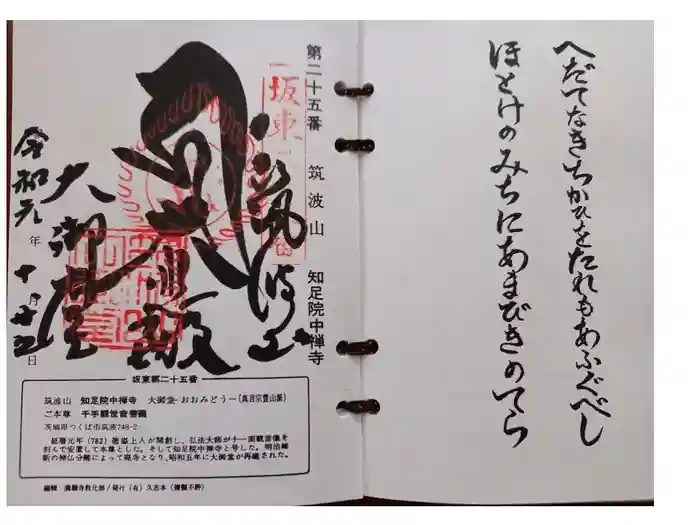 へだてなきちかひをたれもあふぐべし
ほとけのみちにあまびきのてら
第二十五番　筑波山　知足院中禅寺
坂東
筑波山
大御堂
令和元年十月廿五日
坂東第二十五番
筑波山　知足院中禅寺　大御堂─おおみどう─(真言宗豊山派)
ご本尊　千手観世音菩薩
茨城県つくば市筑波748-2
延暦元年(782)徳溢上人が開創し、弘法大師が十一面観音像を
刻んで安置して本尊とした。そして知足院中禅寺と号した。明治維
新の神仏分離によって廃寺となり、昭和五年に大御堂が再建された。
編輯：満願寺教化部／発行(有)久志本(複製不許)